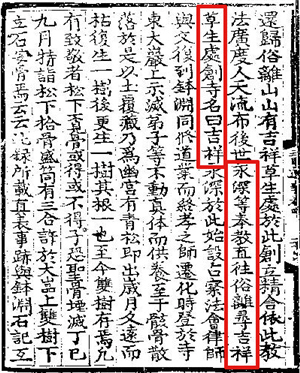 還歸俗離山山有吉祥草生處於此創立精舍依此教
法廣度人天流布後世永深等奉教直往俗離尋吉祥
草生處創寺名曰吉祥永深於此始設占察法會律師
與父復到鉢淵同修道業而終孝之師遷化時登於寺
東大巖上示滅弟子等不動眞体而供養至于骸骨散
落於是以土覆藏乃爲幽宮有青松即出歲月久遠而
枯復生一樹後更生一樹其根一也至今雙樹存焉凡
有致敬者松下覓骨或得或不得予恐聖骨堙滅丁巳
九月特詣松下拾骨盛筒有三合許於大嵓上雙樹下
立石安骨焉云云此録所載眞表事跡與鉢淵石記互